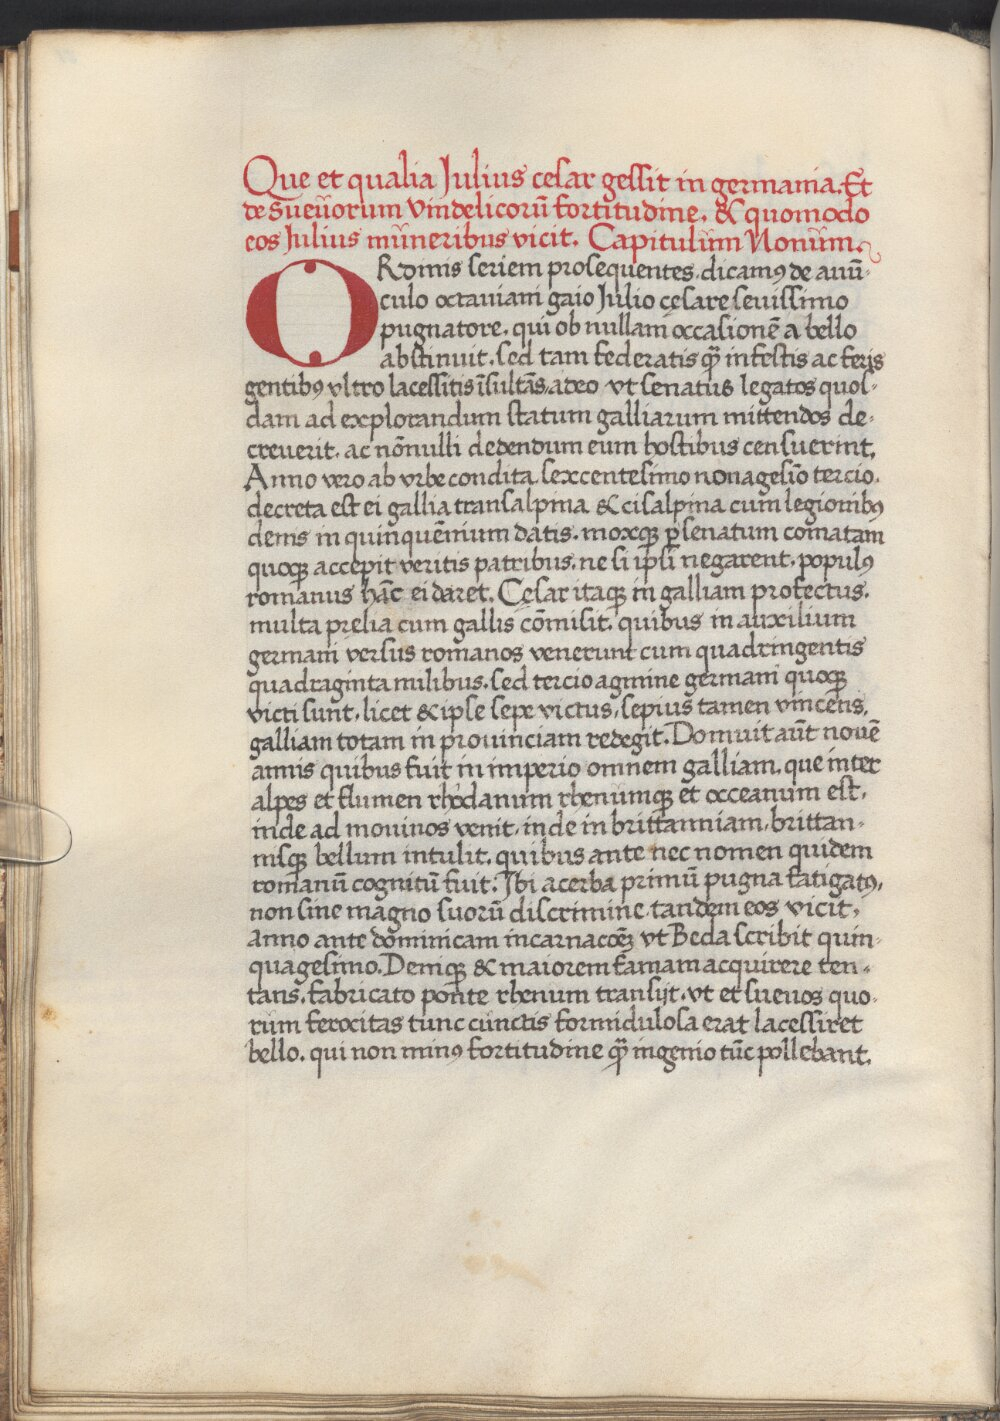 Que et qualia Julius cesar gessit in germania. Et
de Sueuorum Vindelicorū fortitudine. & quomodo
eos Julius muneribus vicit. Capitulum Nonum.
ORdinis seriem prosequentes. dicamꝰ de auū-
culo octauiani gaio Julio cęsare seuissimo
pugnatore. qui ob nullam occasionē a bello
abstinuit. sed tam federatis qȝ̄ infestis ac feris
gentibꝰ vltro lacessitis īsultās, adeo vt senatus legatos quos-
dam ad explorandum statum galliarum mittendos de-
creuerit. ac nōnulli dedendum eum hostibus censuerint.
Anno vero ab vrbe condita sexcentesimo nonagesīo tercio.
decreta est ei gallia transalpina & cisalpina cum legionibꝰ
denis in quinquēnium datis. moxqȝ ꝑ senatum comatam
quoqȝ accepit veritis patribus. ne si ipsi negarent. populꝰ
romanus hāc ei daret. Cęsar itaqȝ in galliam profectus.
multa prelia cum gallis cōmisit. quibus in auxilium
germani versus romanos venerunt cum quadringentis
quadraginta milibus. sed tercio agmine germani quoqȝ
victi sunt. licet & ipse sepe victus, sepius tamen vincens,
galliam totam in prouinciam redegit. Domuit aūt nouē
annis quibus fuit in imperio omnem galliam. que inter
alpes et flumen rhodanum rhenumqȝ et occeanum est.
inde ad mouinos venit. inde in brittanniam. brittan-
nisqȝ bellum intulit. quibus ante nec nomen quidem
romanū cognitū fuit. Jbi acerba primū pugna fatigatꝰ,
non sine magno suorū discrimine tandem eos vicit,
anno ante dominicam incarnacōeȝ vt Beda scribit quin-
quagesimo. Deniqȝ & maiorem famam acquirere ten-
tans. fabricato ponte rhenum transijt. vt et sueuos quo-
rum ferocitas tunc cunctis formidulosa erat lacessiret
bello. qui non minꝰ fortitudine qȝ̄ ingenio tūc pollebant.